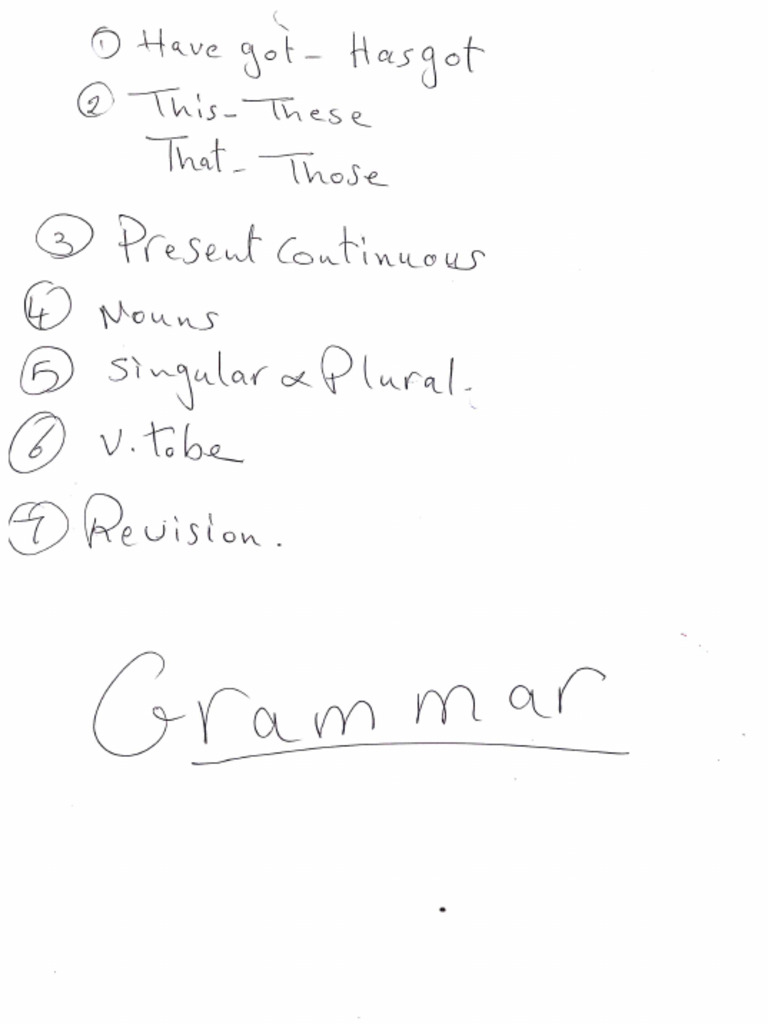 ① Have got - Hasgot
② This - These
That - Those
③ Present continuous
④ Nouns
⑤ singular & Plural.
⑥ v. tobe
⑦ Revision.
Grammar